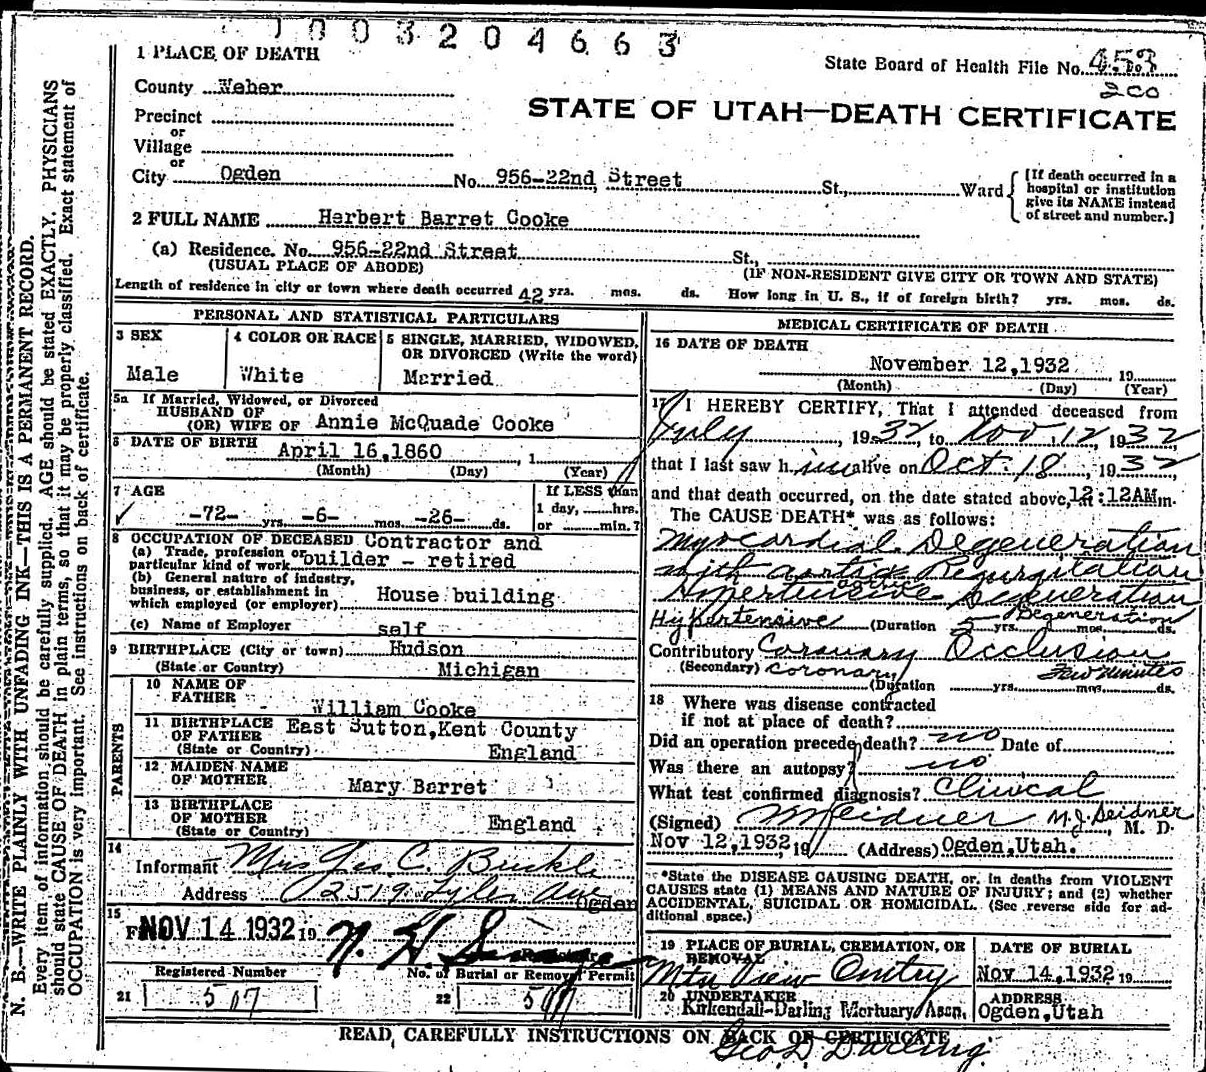 1003204663
1 PLACE OF DEATH
State Board of Health File No. 453
200
County Weber
STATE OF UTAH—DEATH CERTIFICATE
Precinct
or
Village
or
City Ogden No. 956-22nd Street St., Ward
[If death occurred in a hospital or institution give its NAME instead of street and number.]
2 FULL NAME Herbert Barret Cooke
(a) Residence. No. 956-22nd Street St.,
(USUAL PLACE OF ABODE) (IF NON-RESIDENT GIVE CITY OR TOWN AND STATE)
Length of residence in city or town where death occurred 42 yrs. mos. ds. How long in U. S., if of foreign birth? yrs. mos. ds.
PERSONAL AND STATISTICAL PARTICULARS
3 SEX
Male
4 COLOR OR RACE
White
5 SINGLE, MARRIED, WIDOWED,
OR DIVORCED (Write the word)
Married
5a If Married, Widowed, or Divorced
HUSBAND OF
(OR) WIFE OF Annie McQuade Cooke
6 DATE OF BIRTH
April 16,1860, 1
(Month) (Day) (Year)
7 AGE
-72- yrs. -6- mos. -26- ds.
If LESS than
1 day, hrs.
or min.?
8 OCCUPATION OF DECEASED Contractor and
(a) Trade, profession or
particular kind of work builder - retired
(b) General nature of industry,
business, or establishment in
which employed (or employer) House building
(c) Name of Employer self
9 BIRTHPLACE (City or town) Hudson
(State or Country) Michigan
PARENTS
10 NAME OF
FATHER William Cooke
11 BIRTHPLACE
OF FATHER East Sutton,Kent County
(State or Country) England
12 MAIDEN NAME
OF MOTHER Mary Barret
13 BIRTHPLACE
OF MOTHER
(State or Country) England
14
Informant Mrs Geo C. Buckle
Address 2519 Tyler Ave Ogden
15
NOV 14 1932 19
N. H.
Registered Number
21 507
No. of Burial or Removal Permit
22 507
MEDICAL CERTIFICATE OF DEATH
16 DATE OF DEATH
November 12,1932, 19
(Month) (Day) (Year)
17 I HEREBY CERTIFY, That I attended deceased from
July, 1932, to Nov. 12, 1932
that I last saw him alive on Oct. 18, 1932
and that death occurred, on the date stated above, 12:12AM m.
The CAUSE DEATH* was as follows:
Myocardial Degeneration
with aortic Regurgitation
aortic
Hypertensive Degeneration
Degeneration
Hypertensive (Duration 5 yrs. mos. ds.
Contributory Coronary Occlusion
(Secondary) coronary few minutes
(Duration yrs. mos. ds.
18 Where was disease contracted
if not at place of death?
Did an operation precede death? no Date of
Was there an autopsy? no
What test confirmed diagnosis? Clinical
(Signed) M J Seidner M.J. Seidner, M. D.
Nov 12,1932, 19 (Address) Ogden,Utah.
*State the DISEASE CAUSING DEATH, or, in deaths from VIOLENT
CAUSES state (1) MEANS AND NATURE OF INJURY; and (2) whether
ACCIDENTAL, SUICIDAL OR HOMICIDAL. (See reverse side for ad-
ditional space.)
19 PLACE OF BURIAL, CREMATION, OR
REMOVAL
Mtn View Cmtry
DATE OF BURIAL
Nov 14,1932 19
20 UNDERTAKER
Kirkendall-Darling Mortuary Assn.
ADDRESS
Ogden,Utah
READ CAREFULLY INSTRUCTIONS ON BACK OF CERTIFICATE
Geo D Darling
N. B.—WRITE PLAINLY WITH UNFADING INK—THIS IS A PERMANENT RECORD.
Every item of information should be carefully supplied. AGE should be stated EXACTLY. PHYSICIANS
should state CAUSE OF DEATH in plain terms, so that it may be properly classified. Exact statement of
OCCUPATION is very important. See instructions on back of certificate.